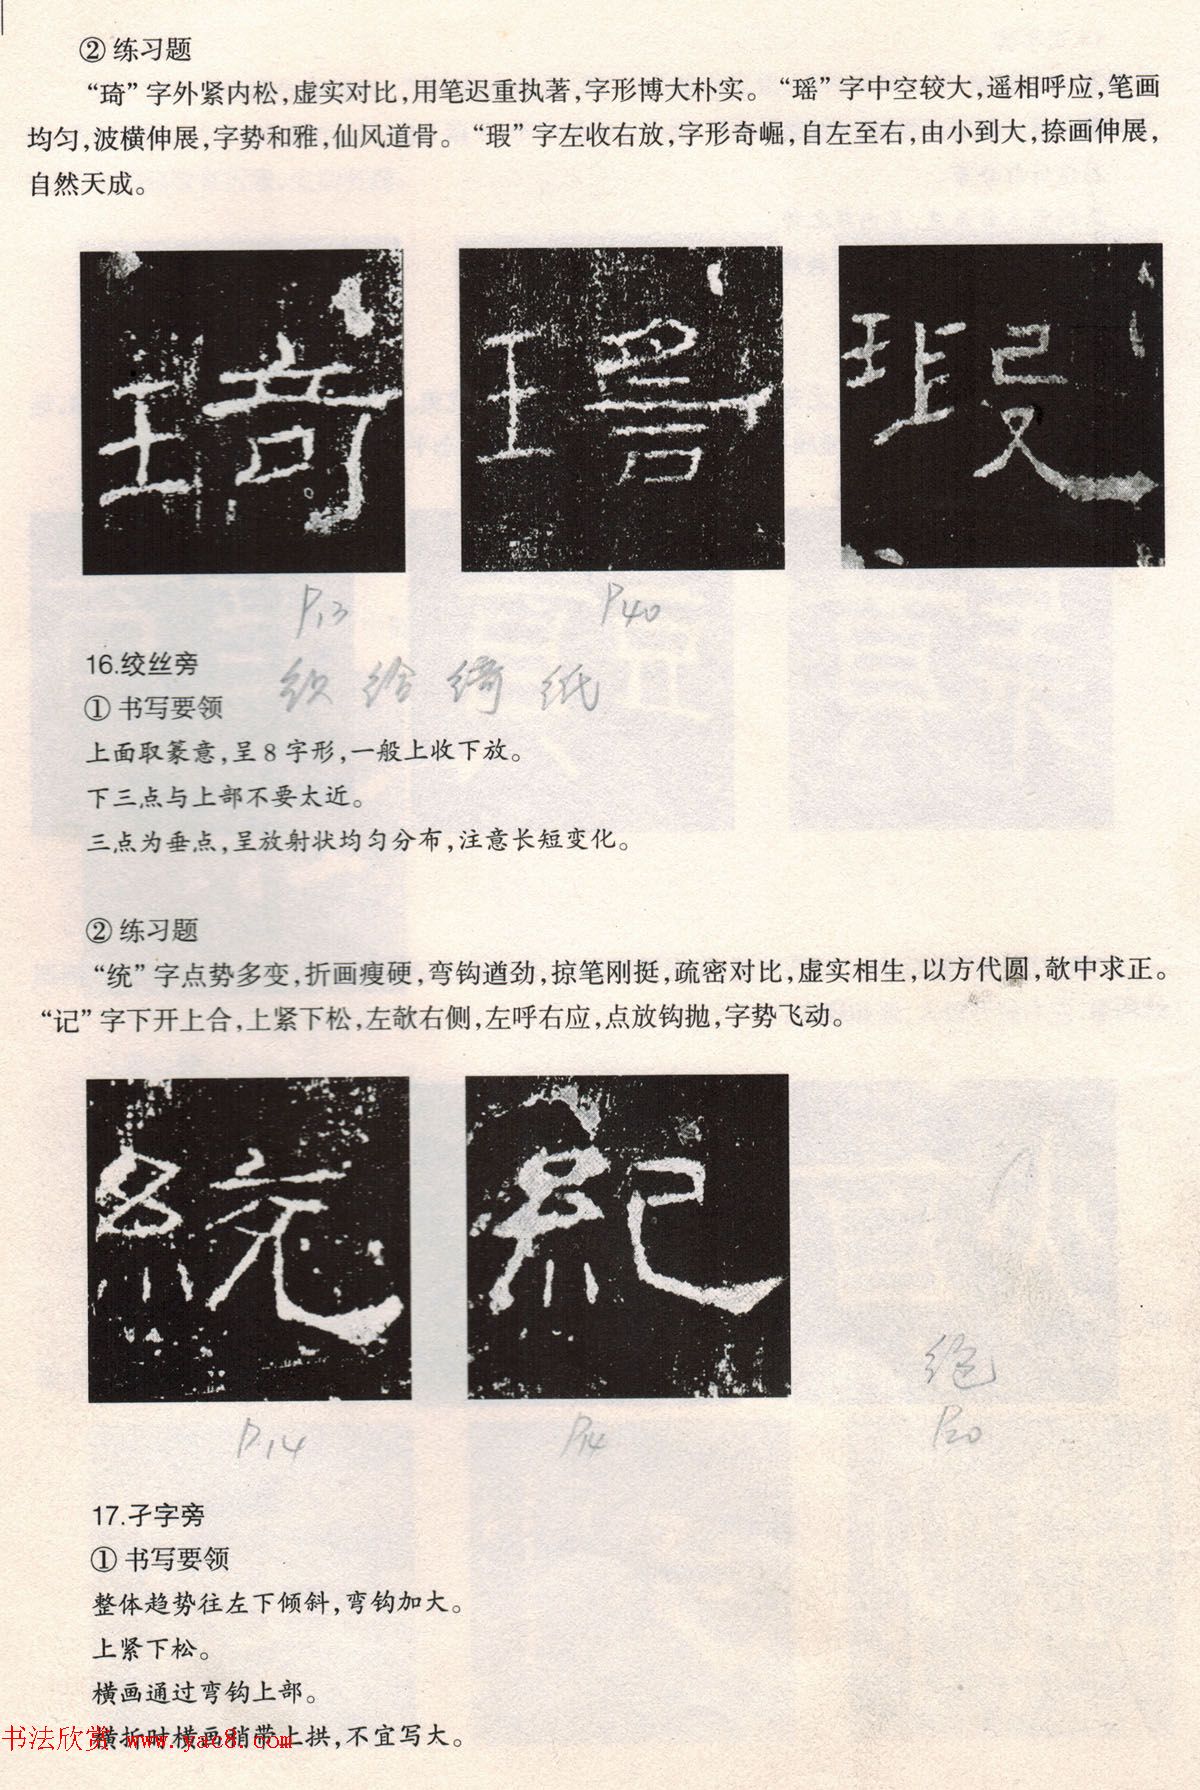 ② 练习题
“琦”字外紧内松,虚实对比,用笔迟重执著,字形博大朴实。“瑶”字中空较大,遥相呼应,笔画
均匀,波横伸展,字势和雅,仙风道骨。“瑕”字左收右放,字形奇崛,自左至右,由小到大,捺画伸展,
自然天成。
琦 瑶 瑕
P13 P40
16.绞丝旁
织 给 绮 纸
① 书写要领
上面取篆意,呈8字形,一般上收下放。
下三点与上部不要太近。
三点为垂点,呈放射状均匀分布,注意长短变化。
② 练习题
“统”字点势多变,折画瘦硬,弯钩遒劲,掠笔刚挺,疏密对比,虚实相生,以方代圆,欹中求正。
“记”字下开上合,上紧下松,左欹右侧,左呼右应,点放钩抛,字势飞动。
統 紀
绝
P14 P14 P20
17.孑字旁
① 书写要领
整体趋势往左下倾斜,弯钩加大。
上紧下松。
横画通过弯钩上部。
横折时横画稍带上拱,不宜写大。
书法欣赏 www.yac8.com